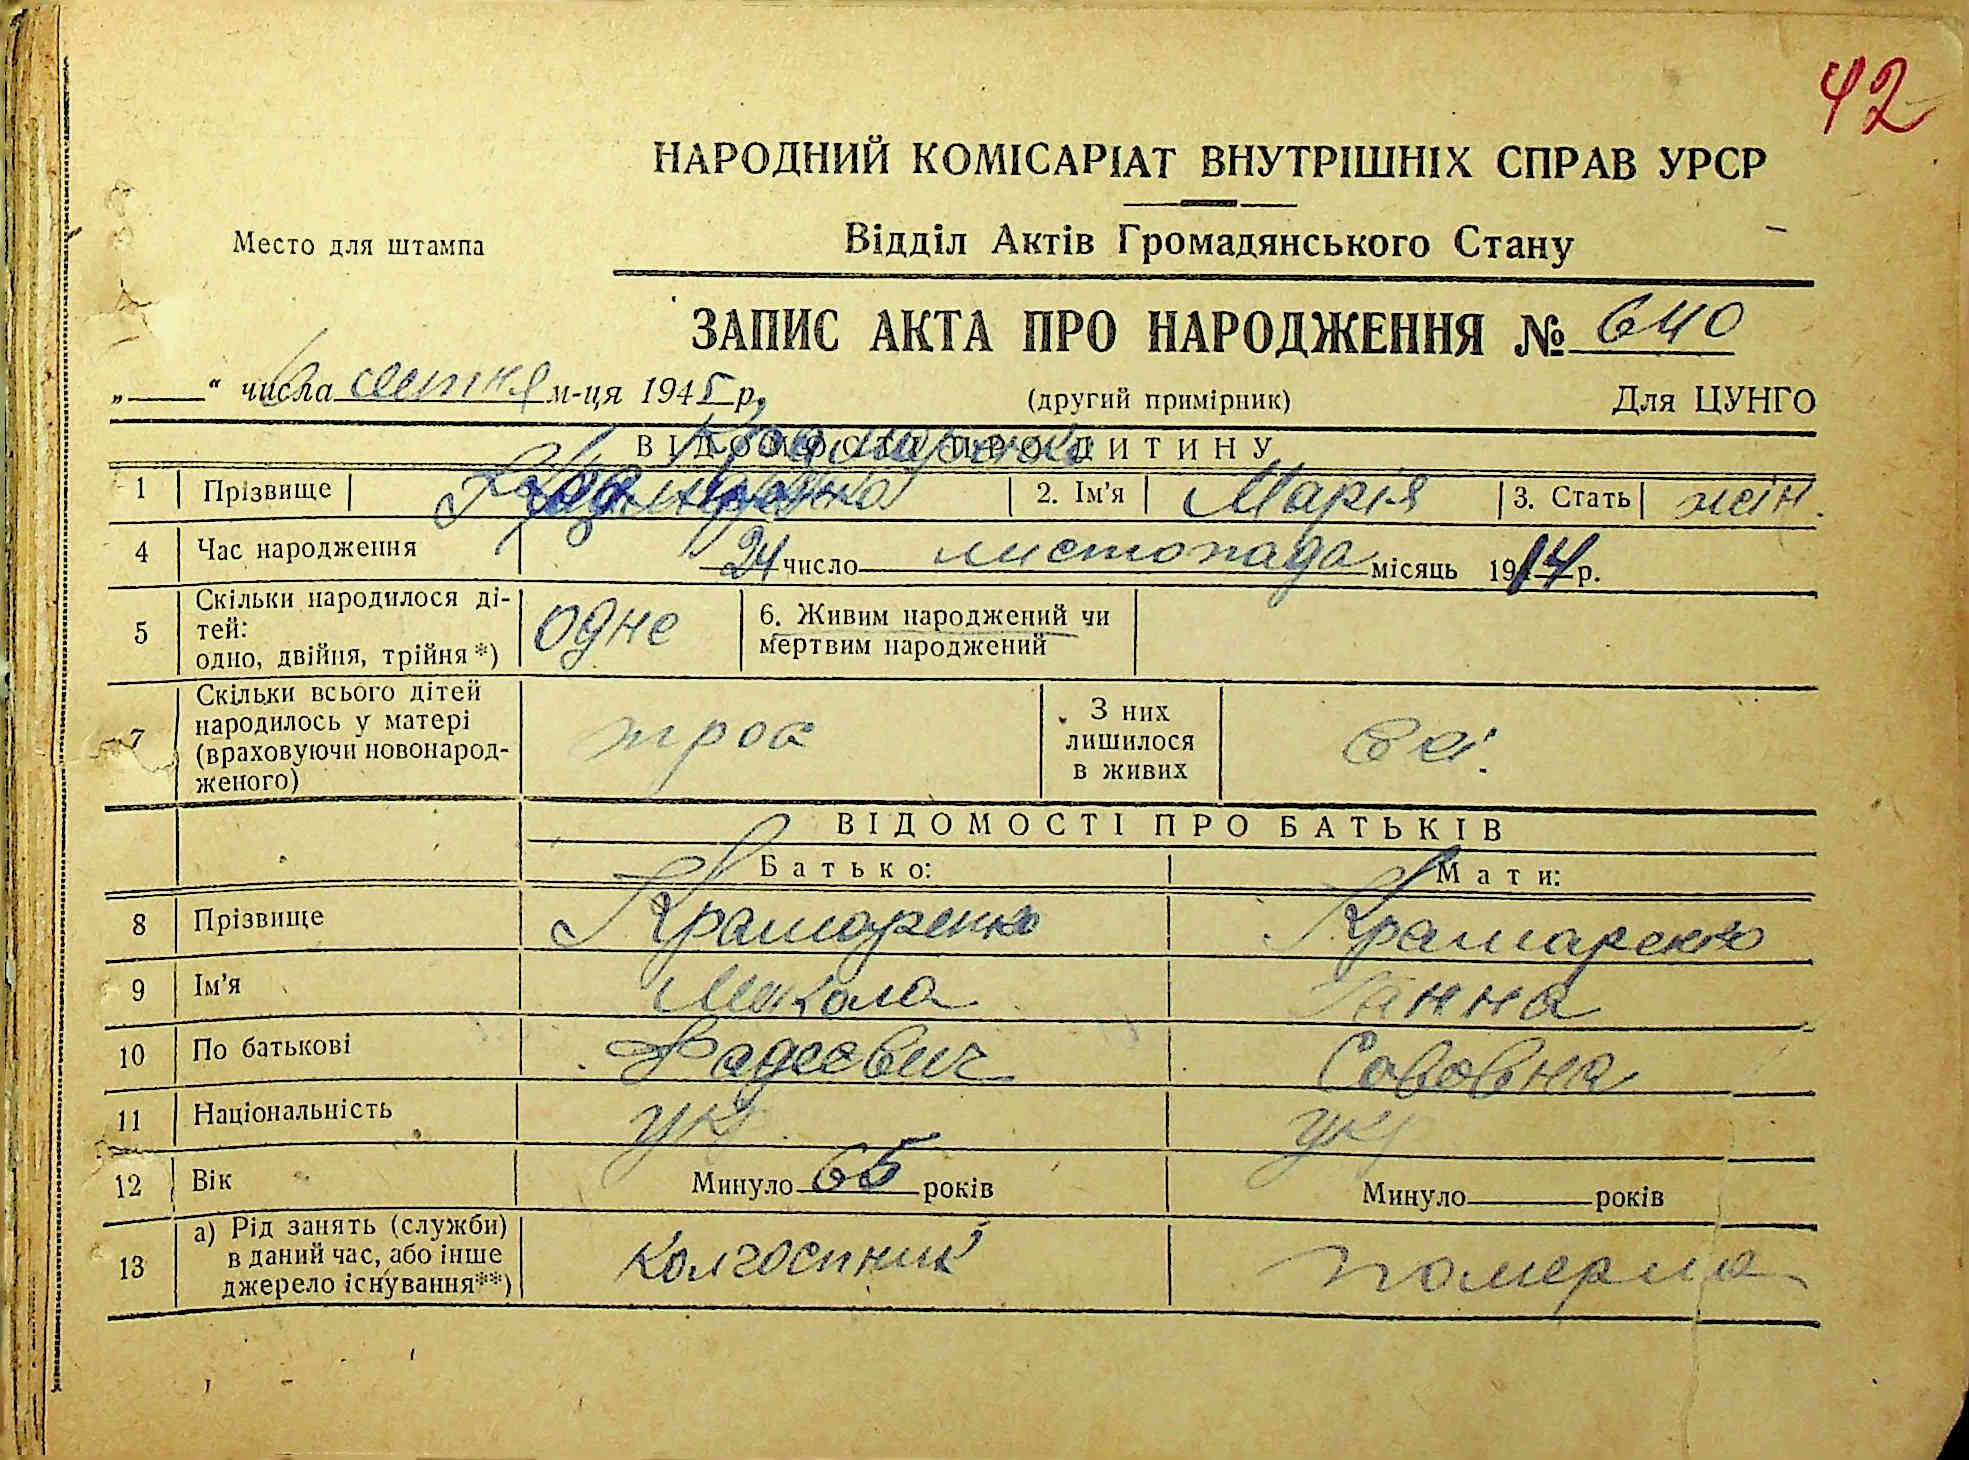 42
НАРОДНИЙ КОМІСАРІАТ ВНУТРІШНІХ СПРАВ УРСР
Место для штампа
Відділ Актів Громадянського Стану
ЗАПИС АКТА ПРО НАРОДЖЕННЯ № 640
„ “ 6 числа м-ця 1945 р. (другий примірник) Для ЦУНГО
ВІДОМОСТІ ПРО ДИТИНУ
Крамаренко
1 Прізвище 2. Ім’я Марія 3. Стать жін.
4 Час народження 24 число листопада місяць 1914 р.
5 Скільки народилося ді-
тей:
одно, двійня, трійня *) одне 6. Живим народжений чи
мертвим народжений
7 Скільки всього дітей
народилось у матері
(враховуючи новонарод-
женого) троє З них
лишилося
в живих всі.
ВІДОМОСТІ ПРО БАТЬКІВ
Батько: Мати:
8 Прізвище Крамаренко Крамаренко
9 Ім’я Микола Ганна
10 По батькові Фадеєвич Сововна
11 Національність укр укр
12 Вік Минуло 65 років Минуло років
13 а) Рід занять (служби)
в даний час, або інше
джерело існування**) Колгоспник померла